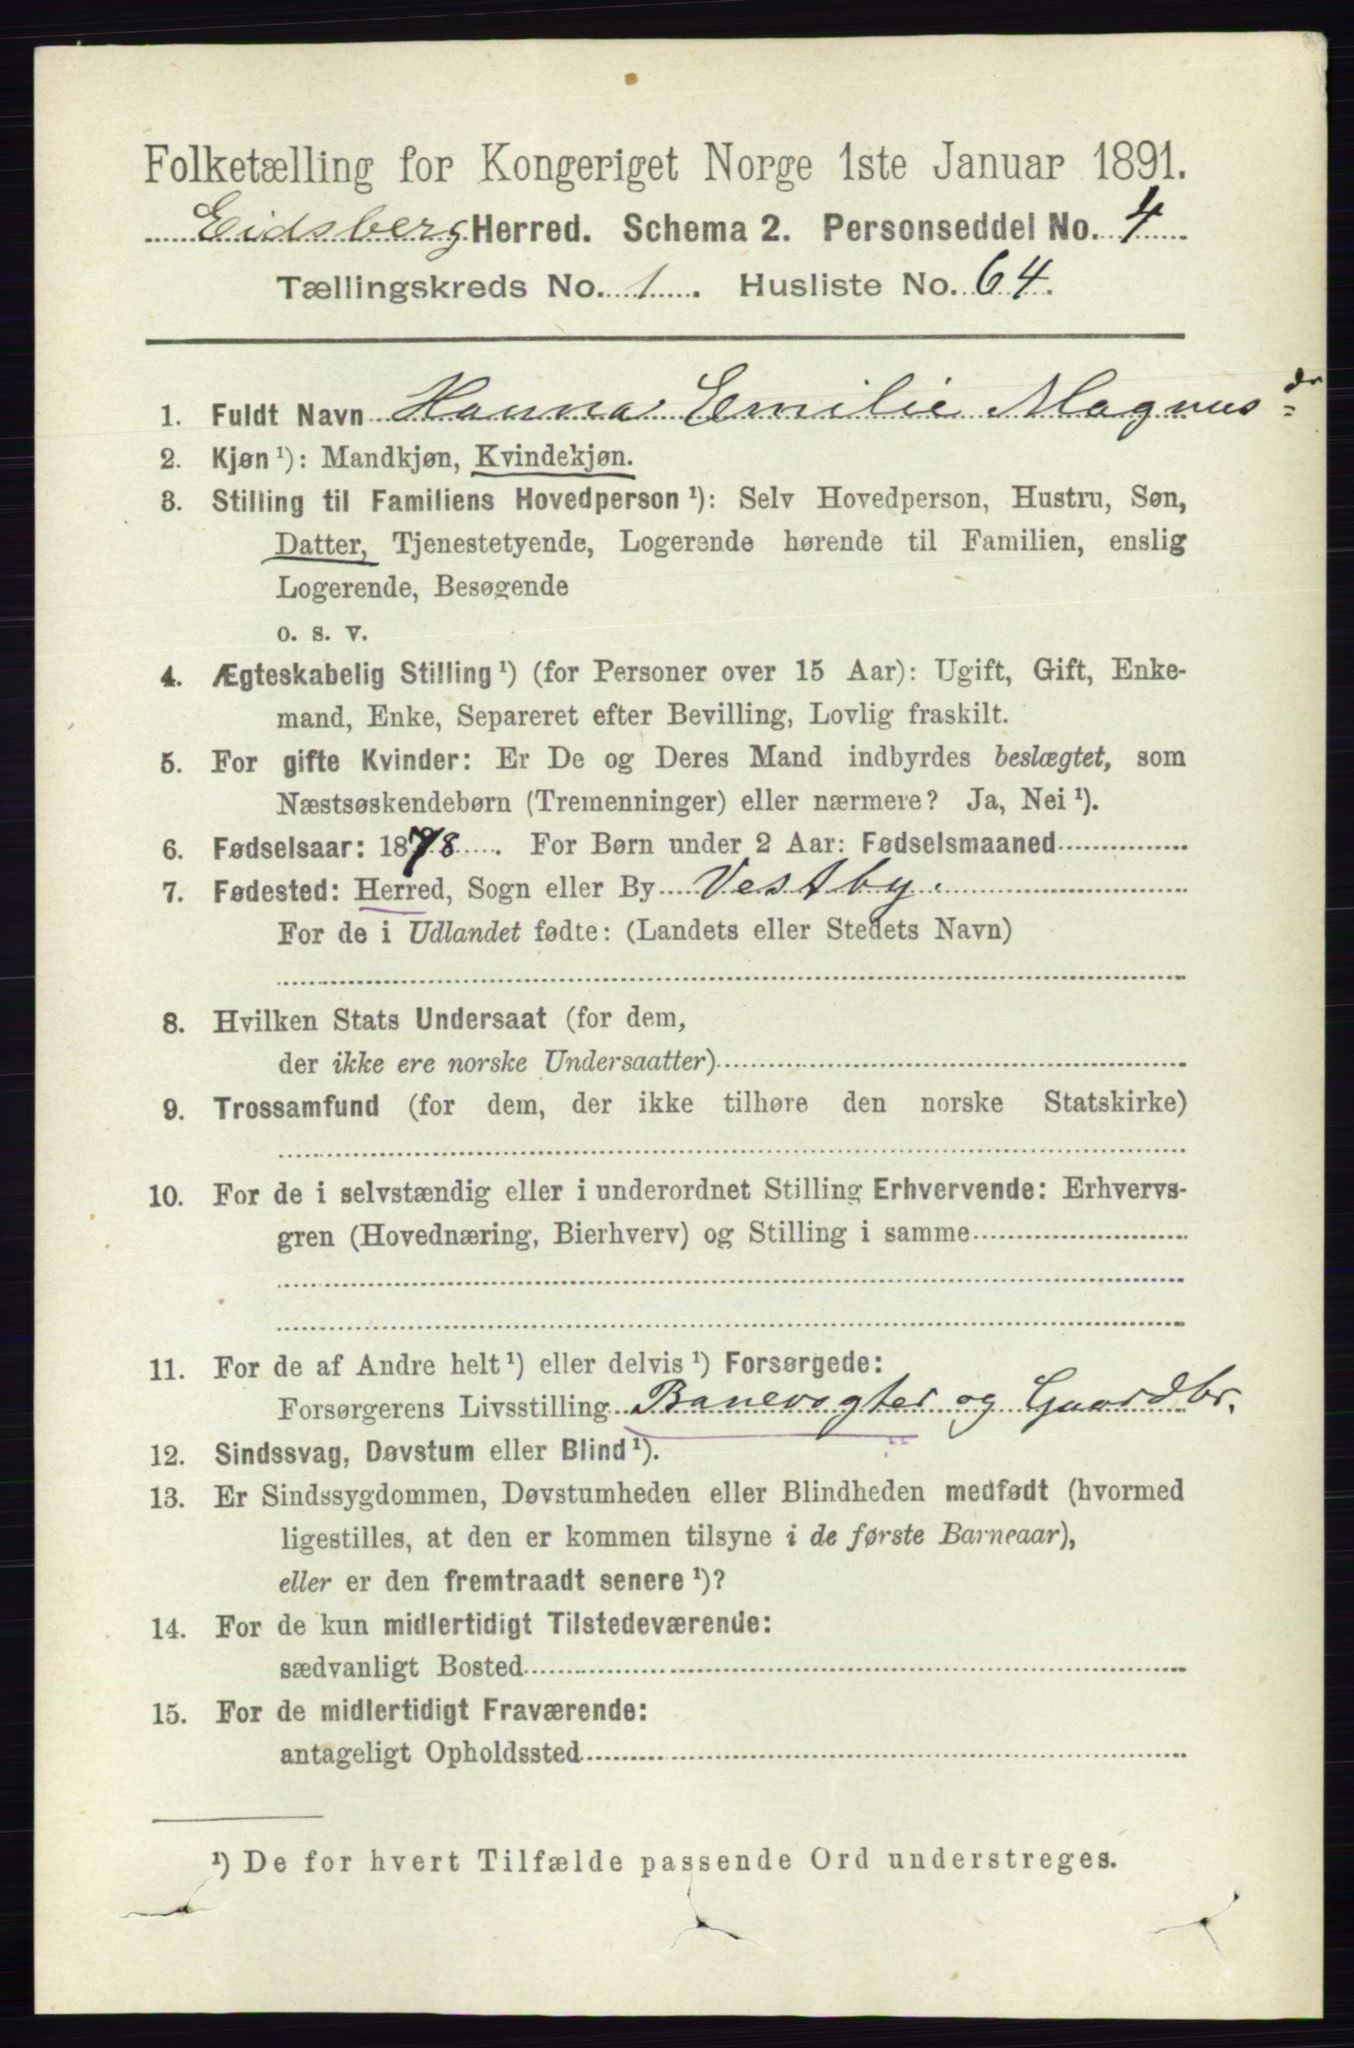 Folketælling for Kongeriget Norge 1ste Januar 1891.
Eidsberg Herred. Schema 2. Personseddel No. 4
Tællingskreds No. 1. Husliste No. 64.
1. Fuldt Navn Hanna Emilie Magnusdr
2. Kjøn ¹): Mandkjøn, Kvindekjøn.
3. Stilling til Familiens Hovedperson ¹): Selv Hovedperson, Hustru, Søn,
Datter, Tjenestetyende, Logerende hørende til Familien, enslig
Logerende, Besøgende
o. s. v.
4. Ægteskabelig Stilling ¹) (for Personer over 15 Aar): Ugift, Gift, Enke-
mand, Enke, Separeret efter Bevilling, Lovlig fraskilt.
5. For gifte Kvinder: Er De og Deres Mand indbyrdes beslægtet, som
Næstsøskendebørn (Tremenninger) eller nærmere? Ja, Nei ¹).
6. Fødselsaar: 1878. For Børn under 2 Aar: Fødselsmaaned
7. Fødested: Herred, Sogn eller By Vestby.
For de i Udlandet fødte: (Landets eller Stedets Navn)
8. Hvilken Stats Undersaat (for dem,
der ikke ere norske Undersaatter)
9. Trossamfund (for dem, der ikke tilhøre den norske Statskirke)
10. For de i selvstændig eller i underordnet Stilling Erhvervende: Erhvervs-
gren (Hovednæring, Bierhverv) og Stilling i samme
11. For de af Andre helt ¹) eller delvis ¹) Forsørgede:
Forsørgerens Livsstilling Banevogter og Gaardbr.
12. Sindssvag, Døvstum eller Blind ¹).
13. Er Sindssygdommen, Døvstumheden eller Blindheden medfødt (hvormed
ligestilles, at den er kommen tilsyne i de første Barneaar),
eller er den fremtraadt senere ¹)?
14. For de kun midlertidigt Tilstedeværende:
sædvanligt Bosted
15. For de midlertidigt Fraværende:
antageligt Opholdssted
¹) De for hvert Tilfælde passende Ord understreges.